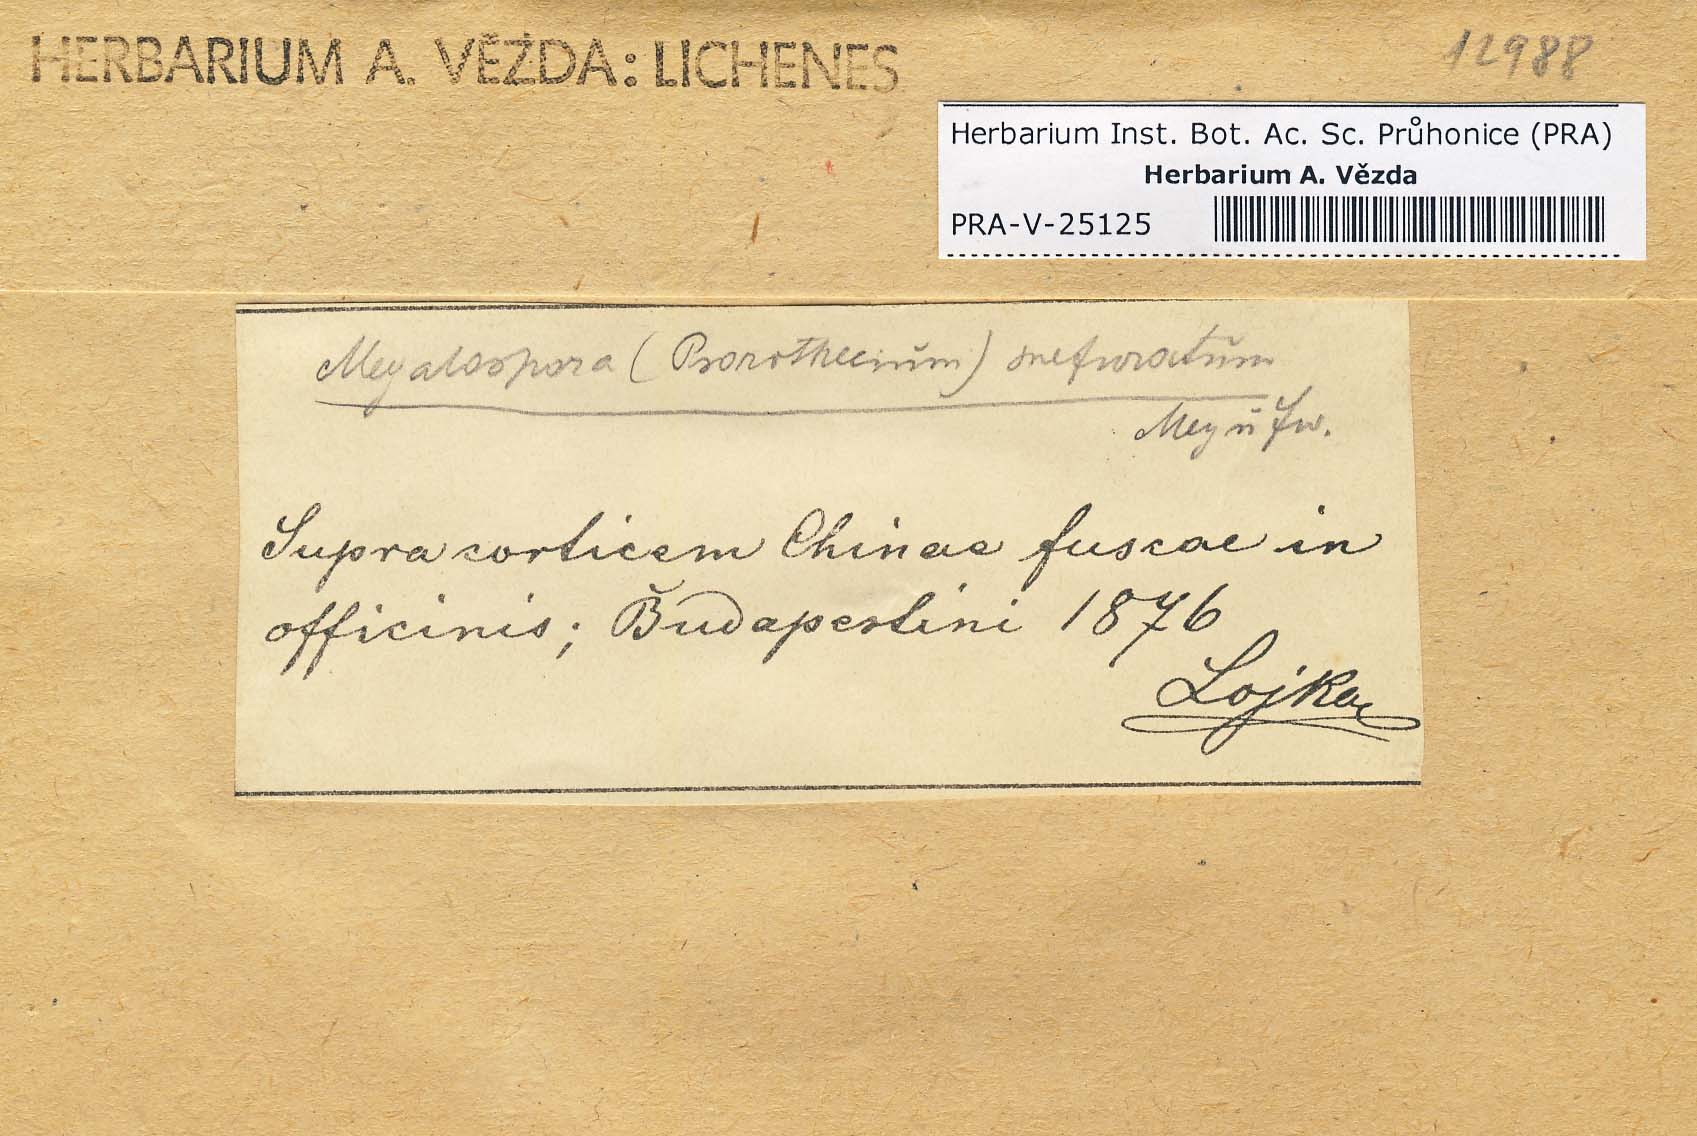 HERBARIUM A. VĚZDA: LICHENES
12988
Herbarium Inst. Bot. Ac. Sc. Průhonice (PRA)
Herbarium A. Vězda
PRA-V-25125
Megalospora (Psorothecium)
Mey ŭ Fw.
Supra corticem Chinae fuscae in
officinis; Budapestini 1876
Lojka